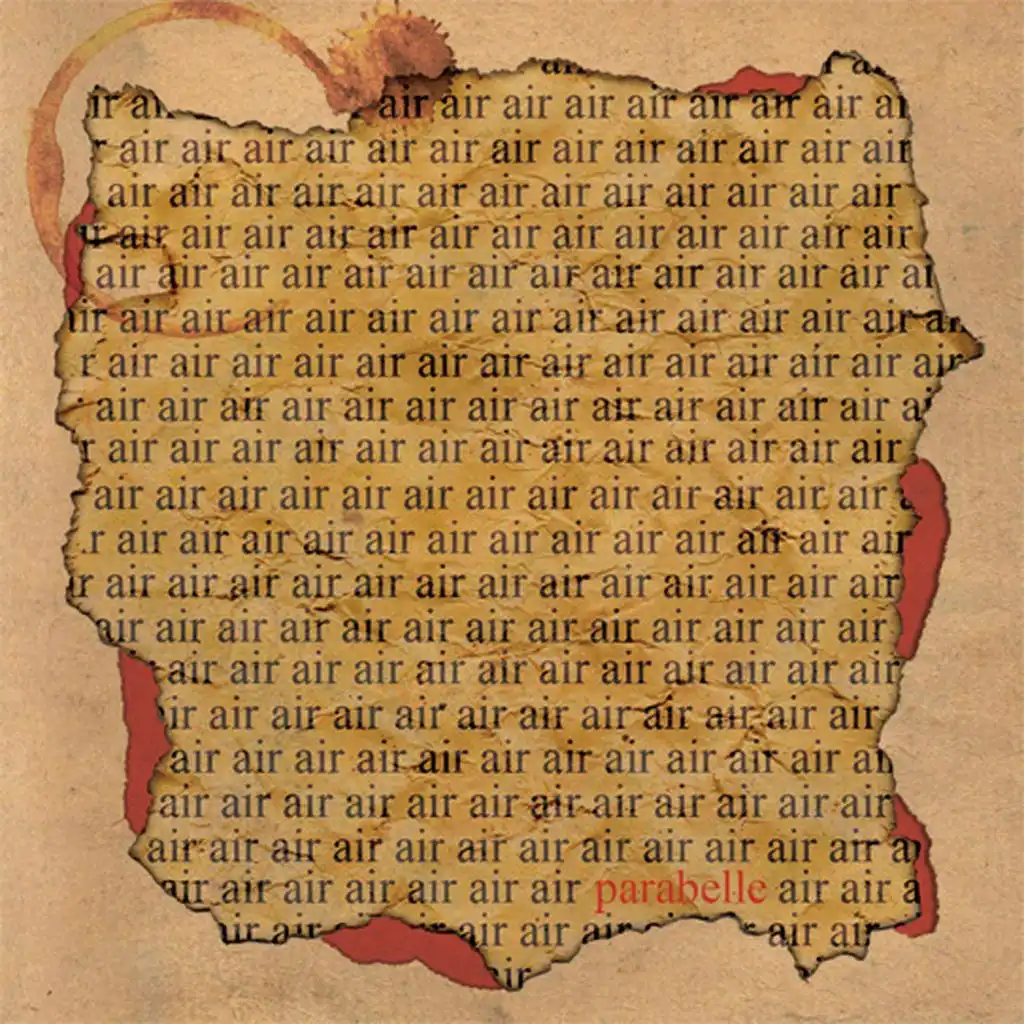 ir ai air air air air air air air air ai
r air air air air air air air air air air air air air
air air air air air air air air air air air air air
ir air air air air air air air air air air air air air
air air air air air air air air air air air air air ai
ir air air air air air air air air air air air air air ai
r air air air air air air air air air air air air air air
air air air air air air air air air air air air air ai
r air air air air air air air air air air air air air
air air air air air air air air air air air air air a
r air air air air air air air air air air air air air
ir air air air air air air air air air air air air air
air air air air air air air air air air air air air
air air air air air air air air air air air air
ir air air air air air air air air air air air
air air air air air air air air air air air ai
air air air air air air air air air air air air
air air air air air air air air air air air air a
air air air air air air air parabelle air air a
air air air air air air air
ir